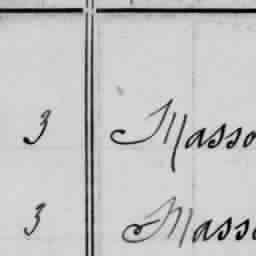 3 Masso
3 Masso